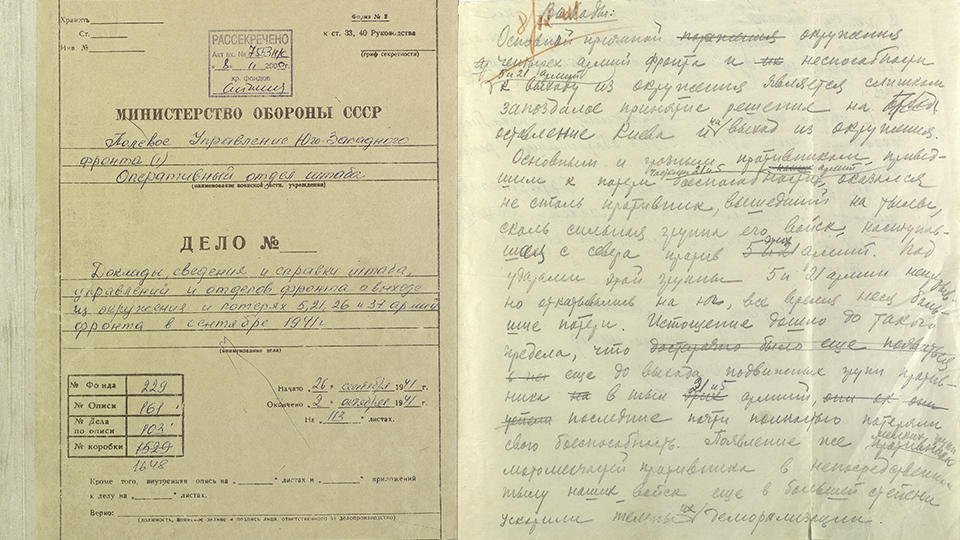 Хранить
Ст.
Инв. №
Форма № 2
к ст. 33, 40 Руководства
(гриф секретности)
РАССЕКРЕЧЕНО
Акт вх. № 753нк
« 8 » 11 2000г.
хр. фондов
МИНИСТЕРСТВО ОБОРОНЫ СССР
Полевое Управление Юго-Западного
фронта (1)
Оперативный отдел штаба
(наименование воинской части, учреждения)
ДЕЛО №
Доклады, сведения и справки штаба,
управлений и отделов фронта о выходе
из окружения и потерях 5, 21, 26 и 37 армий
фронта в сентябре 1941г
(наименование дела)
№ Фонда 229
№ Описи 161
№ Дела по описи 103
№ коробки 1529
1648
Начато „26" сентября 1941 г.
Окончено „2" октября 1941 г.
На 112 листах.
Кроме того, внутренняя опись на листах и приложений
к делу на листах.
Верно:
(должность, воинское звание и подпись лица, ответственного за делопроизводство)
Выводы:
Основной причиной поражения окружения
четырех армий фронта и их неспособности
5 и 21 армий
к выходу из окружения является слишком
запоздалое принятие решения на
оставление Киева и на выход из окружения.
Основным и грозным противником, привед-
шим к потере боеспособности, оказался
не столь противник, вышедший на тылы,
сколь сильная группа его войск, наступав-
шая с севера против 5 и 21 этих армий. Под
ударами этой группы 5 и 21 армии непрерыв-
но откатывались на юг, все время неся боль-
шие потери. Истощение дошло до такого
предела, что достаточно было еще
еще до выхода подвижных групп против-
ника в тыл 21 и 5 армий,
последние почти полностью потеряли
свою боеспособность. Появление же
мотомехчастей противника в непосредственном
тылу наших войск еще в большей степени
ускорили темпы их деморализации.